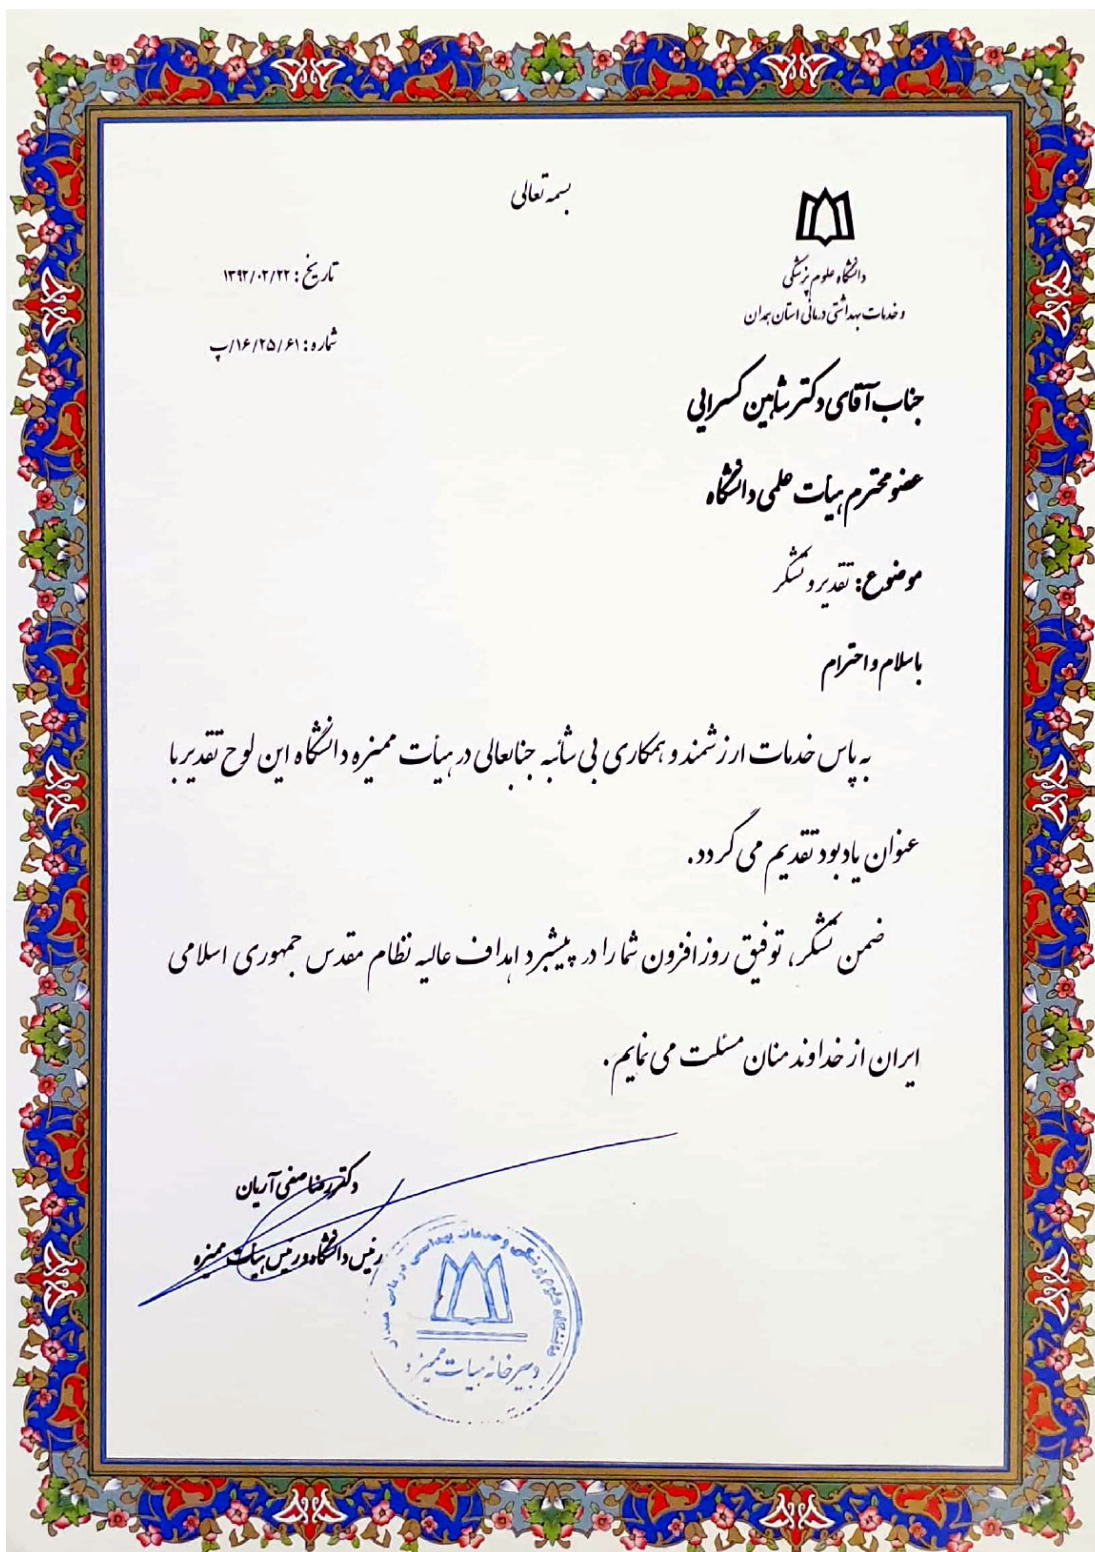 بسمه تعالی
دانشگاه علوم پزشکی
و خدمات بهداشتی درمانی استان همدان
تاریخ : ۱۳۹۲/۰۲/۲۲
شماره : ۱۶/۲۵/۶۱/پ
جناب آقای دکتر شاهین کسرایی
عضو محترم هیأت علمی دانشگاه
موضوع: تقدیر و تشکر
باسلام و احترام
به پاس خدمات ارزشمند و همکاری بی شائبه جنابعالی در هیأت ممیزه دانشگاه این لوح تقدیر با
عنوان یادبود تقدیم می گردد.
ضمن تشکر، توفیق روز افزون شما را در پیشبرد اهداف عالیه نظام مقدس جمهوری اسلامی
ایران از خداوند منان مسئلت می نمایم.
دکتر رضا صفی آریان
رئیس دانشگاه و رئیس هیأت ممیزه
دانشگاه علوم پزشکی و خدمات بهداشتی درمانی همدان
دبیرخانه هیأت ممیزه